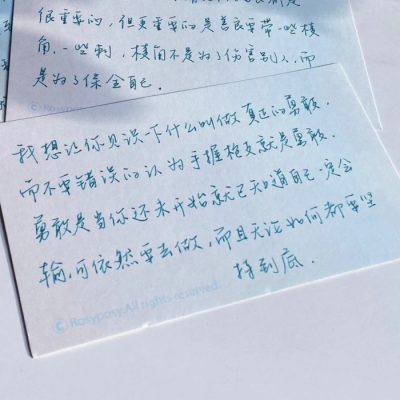 很重要的，但更重要的是善良要带一些棱
角，一些刺，棱角不是为了伤害别人，而
是为了保全自己．
© Rosyposy
我想让你见识一下什么叫做真正的勇敢．
而不要错误的认为手握枪支就是勇敢．
勇敢是当你还未开始就已知道自己一定会
输，可依然要去做，而且无论如何都要坚
持到底．
© Rosyposy.All rights reserved...